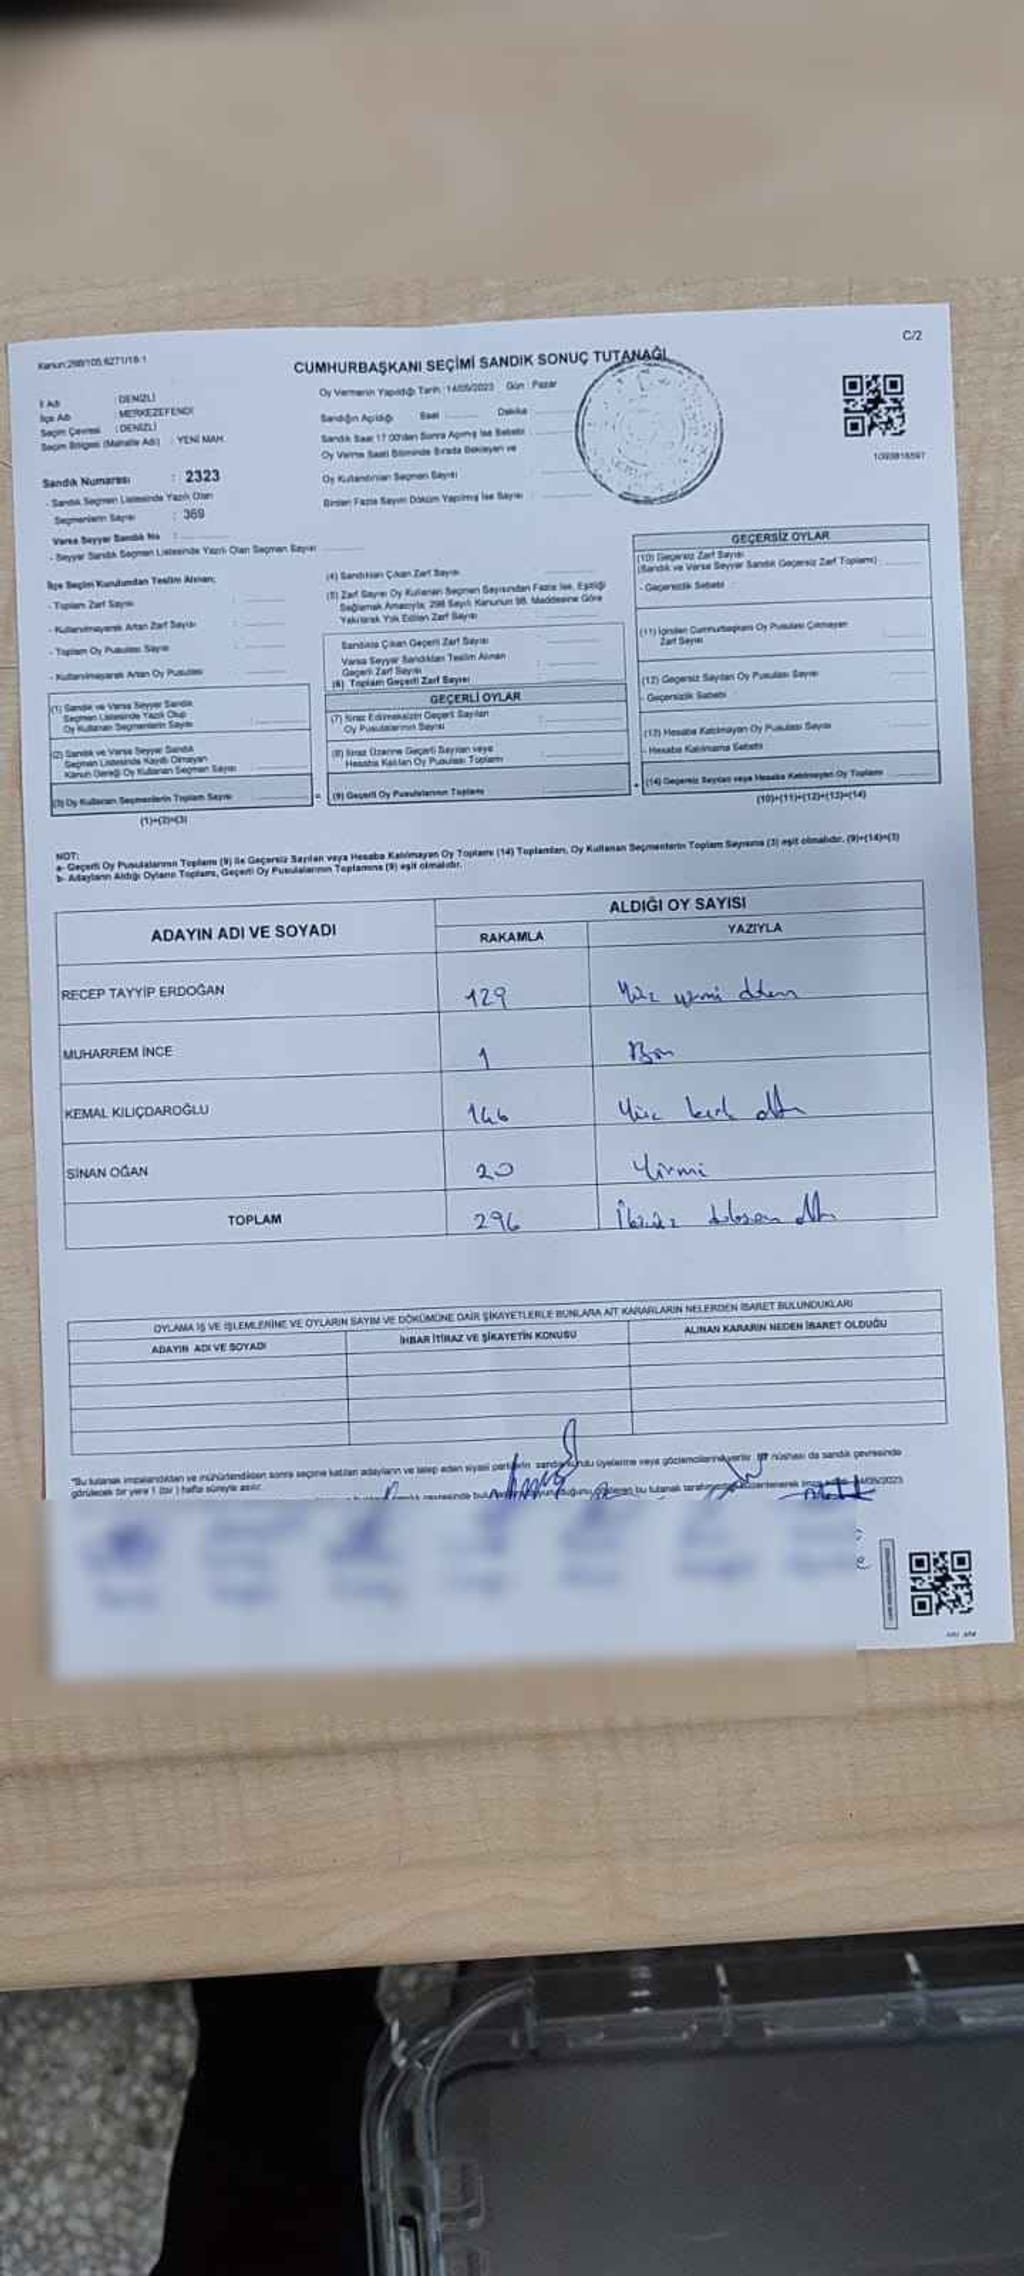 Kanun:298/105,6271/18-1
C/2
CUMHURBAŞKANI SEÇİMİ SANDIK SONUÇ TUTANAĞI
İl Adı : DENİZLİ
İlçe Adı : MERKEZEFENDİ
Seçim Çevresi : DENİZLİ
Seçim Bölgesi (Mahalle Adı) : YENİ MAH.
Sandık Numarası : 2323
- Sandık Seçmen Listesinde Yazılı Olan
Seçmenlerin Sayısı : 369
Varsa Seyyar Sandık No :
- Seyyar Sandık Seçmen Listesinde Yazılı Olan Seçmen Sayısı
Oy Vermenin Yapıldığı Tarih :14/05/2023 Gün : Pazar
Sandığın Açıldığı Saat Dakika
Sandık Saat 17.00'den Sonra Açılmış İse Sebebi :
Oy Verme Saati Bitiminde Sırada Bekleyen ve
Oy Kullandırılan Seçmen Sayısı
Birden Fazla Sayım Döküm Yapılmış İse Sayısı :
1093816597
İlçe Seçim Kurulundan Teslim Alınan;
- Toplam Zarf Sayısı :
- Kullanılmayarak Artan Zarf Sayısı :
- Toplam Oy Pusulası Sayısı :
- Kullanılmayarak Artan Oy Pusulası :
(1) Sandık ve Varsa Seyyar Sandık
Seçmen Listesinde Yazılı Olup
Oy Kullanan Seçmenlerin Sayısı :
(2) Sandık ve Varsa Seyyar Sandık
Seçmen Listesinde Kaydı Olmayan
Kanun Gereği Oy Kullanan Seçmen Sayısı
(3) Oy Kullanan Seçmenlerin Toplam Sayısı :
(1)+(2)=(3)
(4) Sandıktan Çıkan Zarf Sayısı
(5) Zarf Sayısı Oy Kullanan Seçmen Sayısından Fazla İse, Eşitliği
Sağlamak Amacıyla, 298 Sayılı Kanunun 98. Maddesine Göre
Yakılarak Yok Edilen Zarf Sayısı
Sandıkta Çıkan Geçerli Zarf Sayısı
Varsa Seyyar Sandıktan Teslim Alınan
Geçerli Zarf Sayısı
(6) Toplam Geçerli Zarf Sayısı
GEÇERLİ OYLAR
(7) İtiraz Edilmeksizin Geçerli Sayılan
Oy Pusulalarının Sayısı
(8) İtiraz Üzerine Geçerli Sayılan veya
Hesaba Katılan Oy Pusulası Toplamı
(9) Geçerli Oy Pusulalarının Toplamı
GEÇERSİZ OYLAR
(10) Geçersiz Zarf Sayısı
(Sandık ve Varsa Seyyar Sandık Geçersiz Zarf Toplamı)
- Geçersizlik Sebebi
(11) İçinden Cumhurbaşkanı Oy Pusulası Çıkmayan
Zarf Sayısı
(12) Geçersiz Sayılan Oy Pusulası Sayısı
- Geçersizlik Sebebi
(13) Hesaba Katılmayan Oy Pusulası Sayısı
- Hesaba Katılmama Sebebi
(14) Geçersiz Sayılan veya Hesaba Katılmayan Oy Toplamı
(10)+(11)+(12)+(13)=(14)
NOT:
a- Geçerli Oy Pusulalarının Toplamı (9) ile Geçersiz Sayılan veya Hesaba Katılmayan Oy Toplamı (14) Toplamları, Oy Kullanan Seçmenlerin Toplam Sayısına (3) eşit olmalıdır. (9)+(14)=(3)
b- Adayların Aldığı Oyların Toplamı, Geçerli Oy Pusulalarının Toplamına (9) eşit olmalıdır.
ADAYIN ADI VE SOYADI
ALDIĞI OY SAYISI
RAKAMLA YAZIYLA
RECEP TAYYİP ERDOĞAN 129 Yüz yirmi dokuz
MUHARREM İNCE 1 Bir
KEMAL KILIÇDAROĞLU 146 Yüz kırk altı
SİNAN OĞAN 20 Yirmi
TOPLAM 296 İkiyüz doksan altı
OYLAMA İŞ VE İŞLEMLERİNE VE OYLARIN SAYIM VE DÖKÜMÜNE DAİR ŞİKAYETLERLE BUNLARA AİT KARARLARIN NELERDEN İBARET BULUNDUKLARI
ADAYIN ADI VE SOYADI İHBAR İTİRAZ VE ŞİKAYETİN KONUSU ALINAN KARARIN NEDEN İBARET OLDUĞU
"Bu tutanak imzalandıktan ve mühürlendikten sonra seçime katılan adayların ve talep eden siyasi partilerin sandık kurulu üyelerine veya gözlemcilerine verilir. Bir nüshası da sandık çevresinde
görülecek bir yere 1 (bir) hafta süreyle asılır.